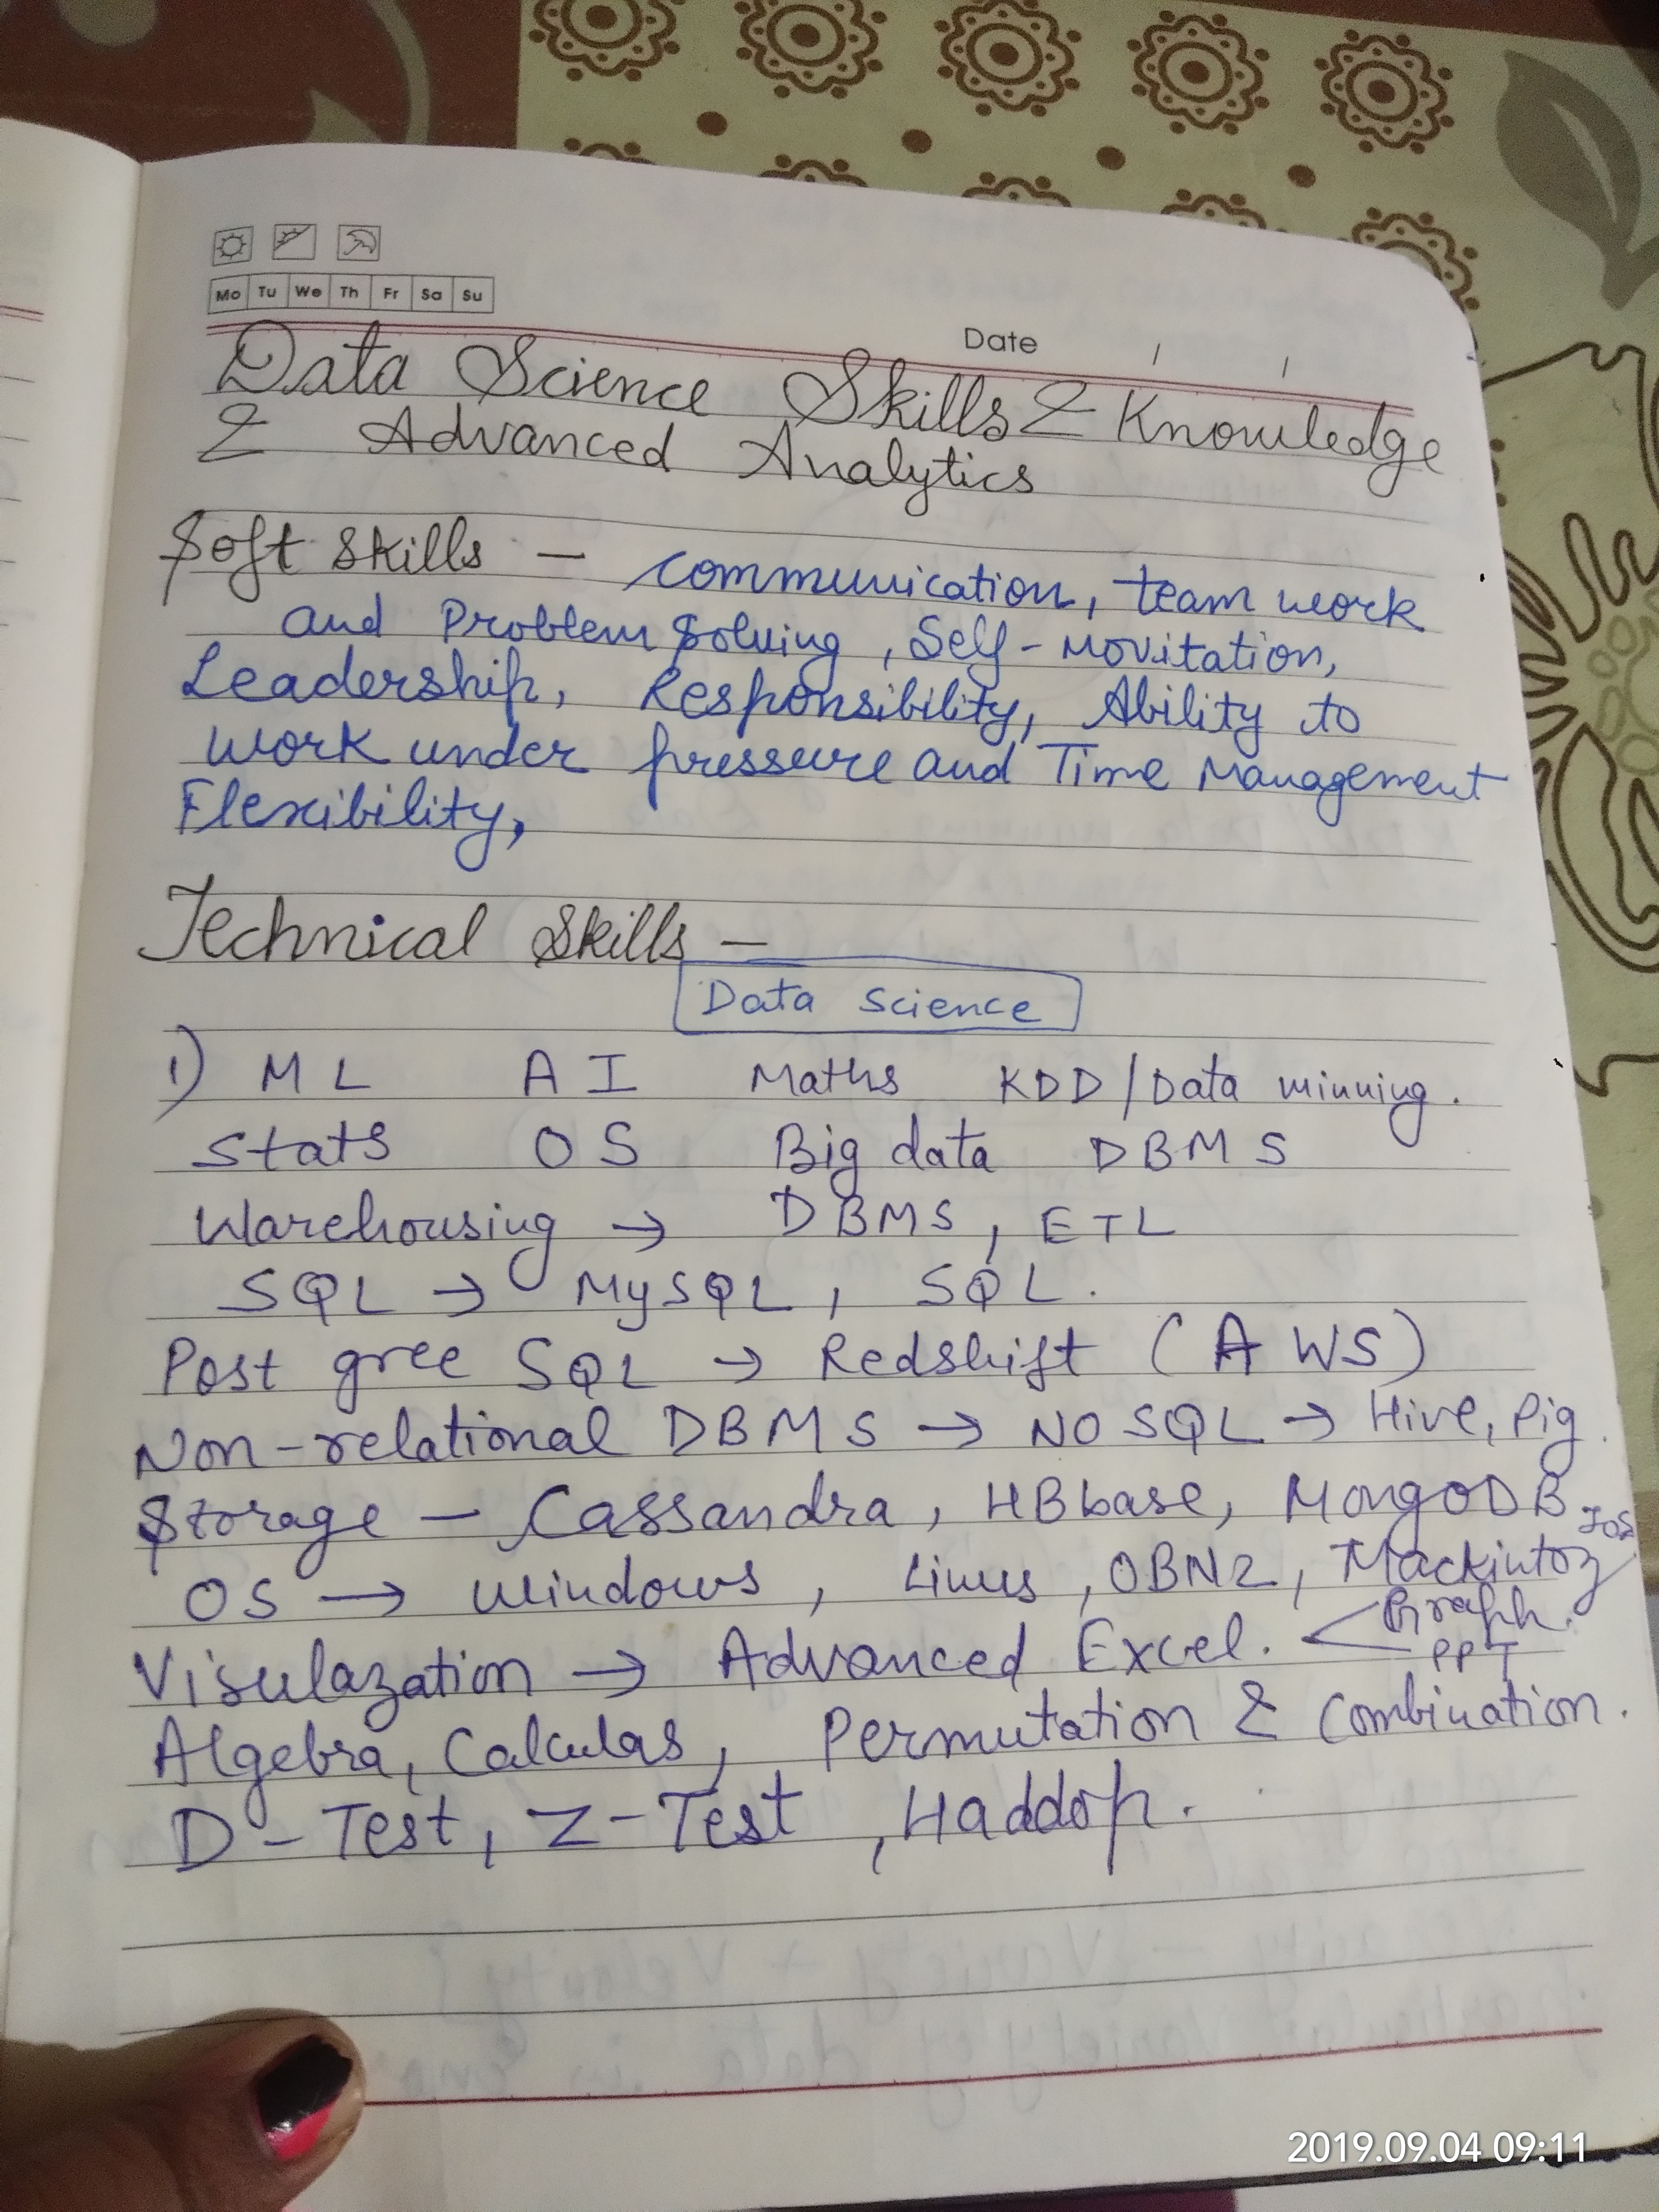 Mo Tu We Th Fr Sa Su
Date / /
Data Science Skills & Knowledge
& Advanced Analytics
Soft Skills — communication, team work
and Problem Solving, Self-Movitation,
Leadership, Responsibility, Ability to
work under pressure and Time Management
Flexibility,
Technical Skills —
Data Science
1) ML AI Maths KDD/Data minning.
Stats OS Big data DBMS
Warehousing → DBMS, ETL
SQL → MySQL, SQL.
Post gree SQL → Redshift (AWS)
Non-relational DBMS → NO SQL → Hive, Pig.
Storage — Cassandra, HBbase, MongoDB
OS → Windows, Linus, OBN2, Mackintoz/
Visulazation → Advanced Excel. < Graph.
PPT
Algebra, Calculas, Permutation & Combination.
D-Test, Z-Test, Haddop.
2019.09.04 09:11